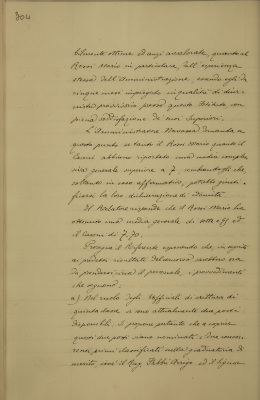 304
bilmente ottimo. D'anzi avvalorate, quanto al
Rossi Mario in particolare, dall'esperienza
stessa dell'Amministrazione, essendo egli da
cinque mesi impiegato in qualità di diur-
nista provvisorio presso questo Istituto con
piena soddisfazione de' suoi Superiori.
L'Amministratore Navassa domanda a
questo punto se tanto il Rossi Mario quanto il
Caroni abbiano riportato una media comples-
siva generale superiore a 7, sembrandogli che,
soltanto in caso affermativo, potrebbe giusti-
ficarsi la loro dichiarazione di idoneità.
Il Relatore risponde che il Rossi Mario ha
ottenuto una media generale di otto
il Caroni di 7,70.
Prosegue il Riferente esponendo che, in seguito
ai predetti risultati del concorso,
da prendersi circa il personale, i provvedimenti
che seguono.
a) Nel ruolo degli Ufficiali di scrittura di
quinta classe vi sono attualmente due posti
disponibili. Si propone pertanto che a coprire
questi due posti siano nominati i due concor-
renti primi classificati nella graduatoria di
merito, cioè il Rag. Fabbi Arrigo ed il Signor